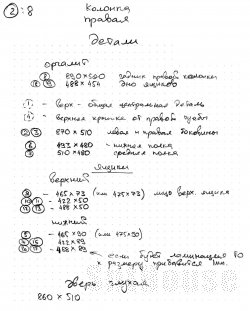 2 : 8
Колонка
правая
Детали
оргалит
8 890×500 задник правой колонки
488×454 дно ящиков
1 - верх - общая центральная деталь
4 - верхняя крышка от правой тумбы
2 3 870 × 510 левая и правая боковины
6 493 × 480 - нижняя полка
5 510 × 480 средняя полка
ящики
верхний
9 - 465 × 73 (или 475×73) лицо верх. ящика
10 11 - 422 × 50
12 13 - 488 × 50
нижний
- 465 × 90 (или 475×90)
15 - 422 × 89
16 17 - 488 × 89
если будет ламинация ПО
к размеру прибавится 1мм.
дверь глухая
860 × 510